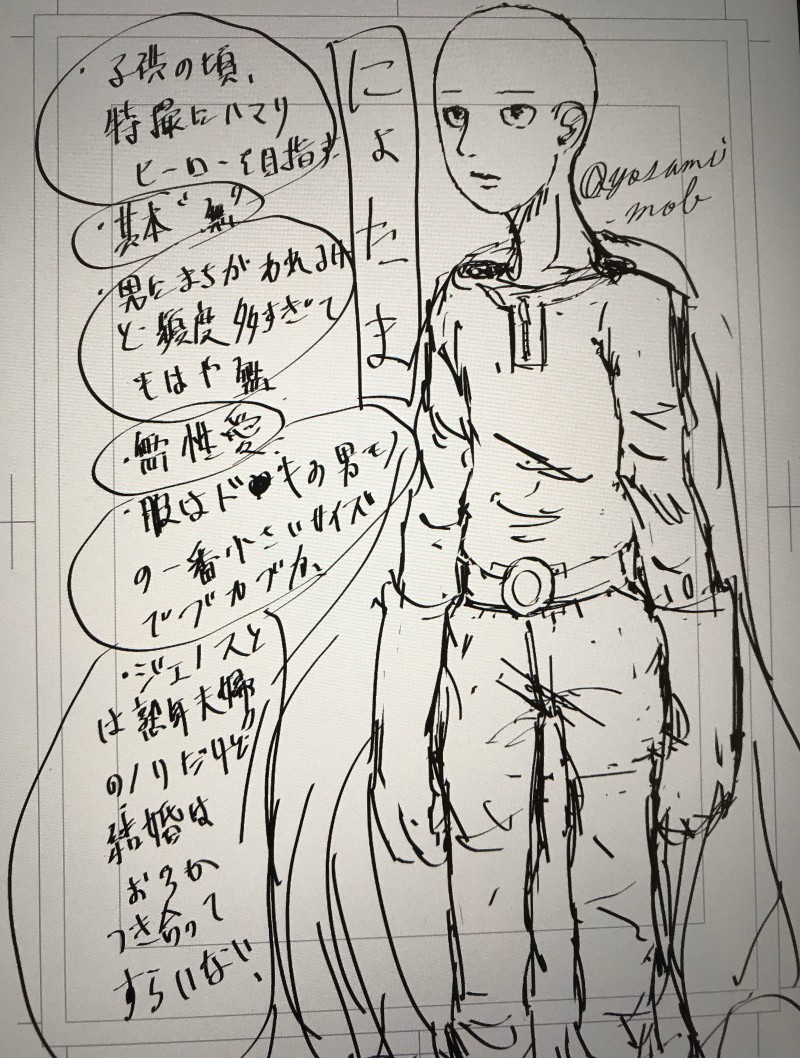 にょたま
・子供の頃、
特撮にハマり
ヒーローを目指す
・基本"無"
・男にまちがわれるけ
ど頻度多すぎて
もはや無
・無性愛
・服はド●キの男モノ
の一番小さいサイズ
でブカブカ、
・ジェノスと
は熟年夫婦
のノリだけど
結婚は
おろか
つき合って
すらいない、
@yosami
-mob